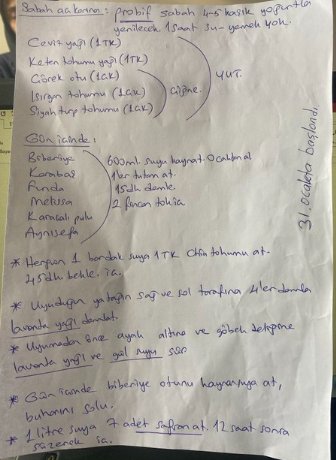 Sabah aç karnına: probif sabah 4-5 kaşık yoğurtla
yenilecek 1 saat su-yemek yok.
Ceviz yağı (1TK)
Keten tohumu yağı (1TK)
Çörek otu (1ÇK)
Isırgan tohumu (1ÇK)
Siyah turp tohumu (1ÇK)
Çiğne.
YUT.
Gün içinde:
Biberiye
Karabaş
Funda
Melissa
Karaçalı pulu
Aynısefa
600ml suyu kaynat. Ocaktan al
1'er tutam at.
15 dk demle.
2 fincan tok iç
31. ocakta başlandı.
* Hergün 1 bardak suya 1TK tohumu at.
45dk bekle. iç.
* Uyuduğun yatağın sağ ve sol tarafına 4'er damla
lavanta yağı damlat.
* Uyumadan önce ayak altına ve göbek deliğine
lavanta yağı ve gül suyu sür
* Gün içinde biberiye otunu kaynar suya at,
buharını solu.
* 1 litre suya 7 adet safran at. 12 saat sonra
süzerek iç.